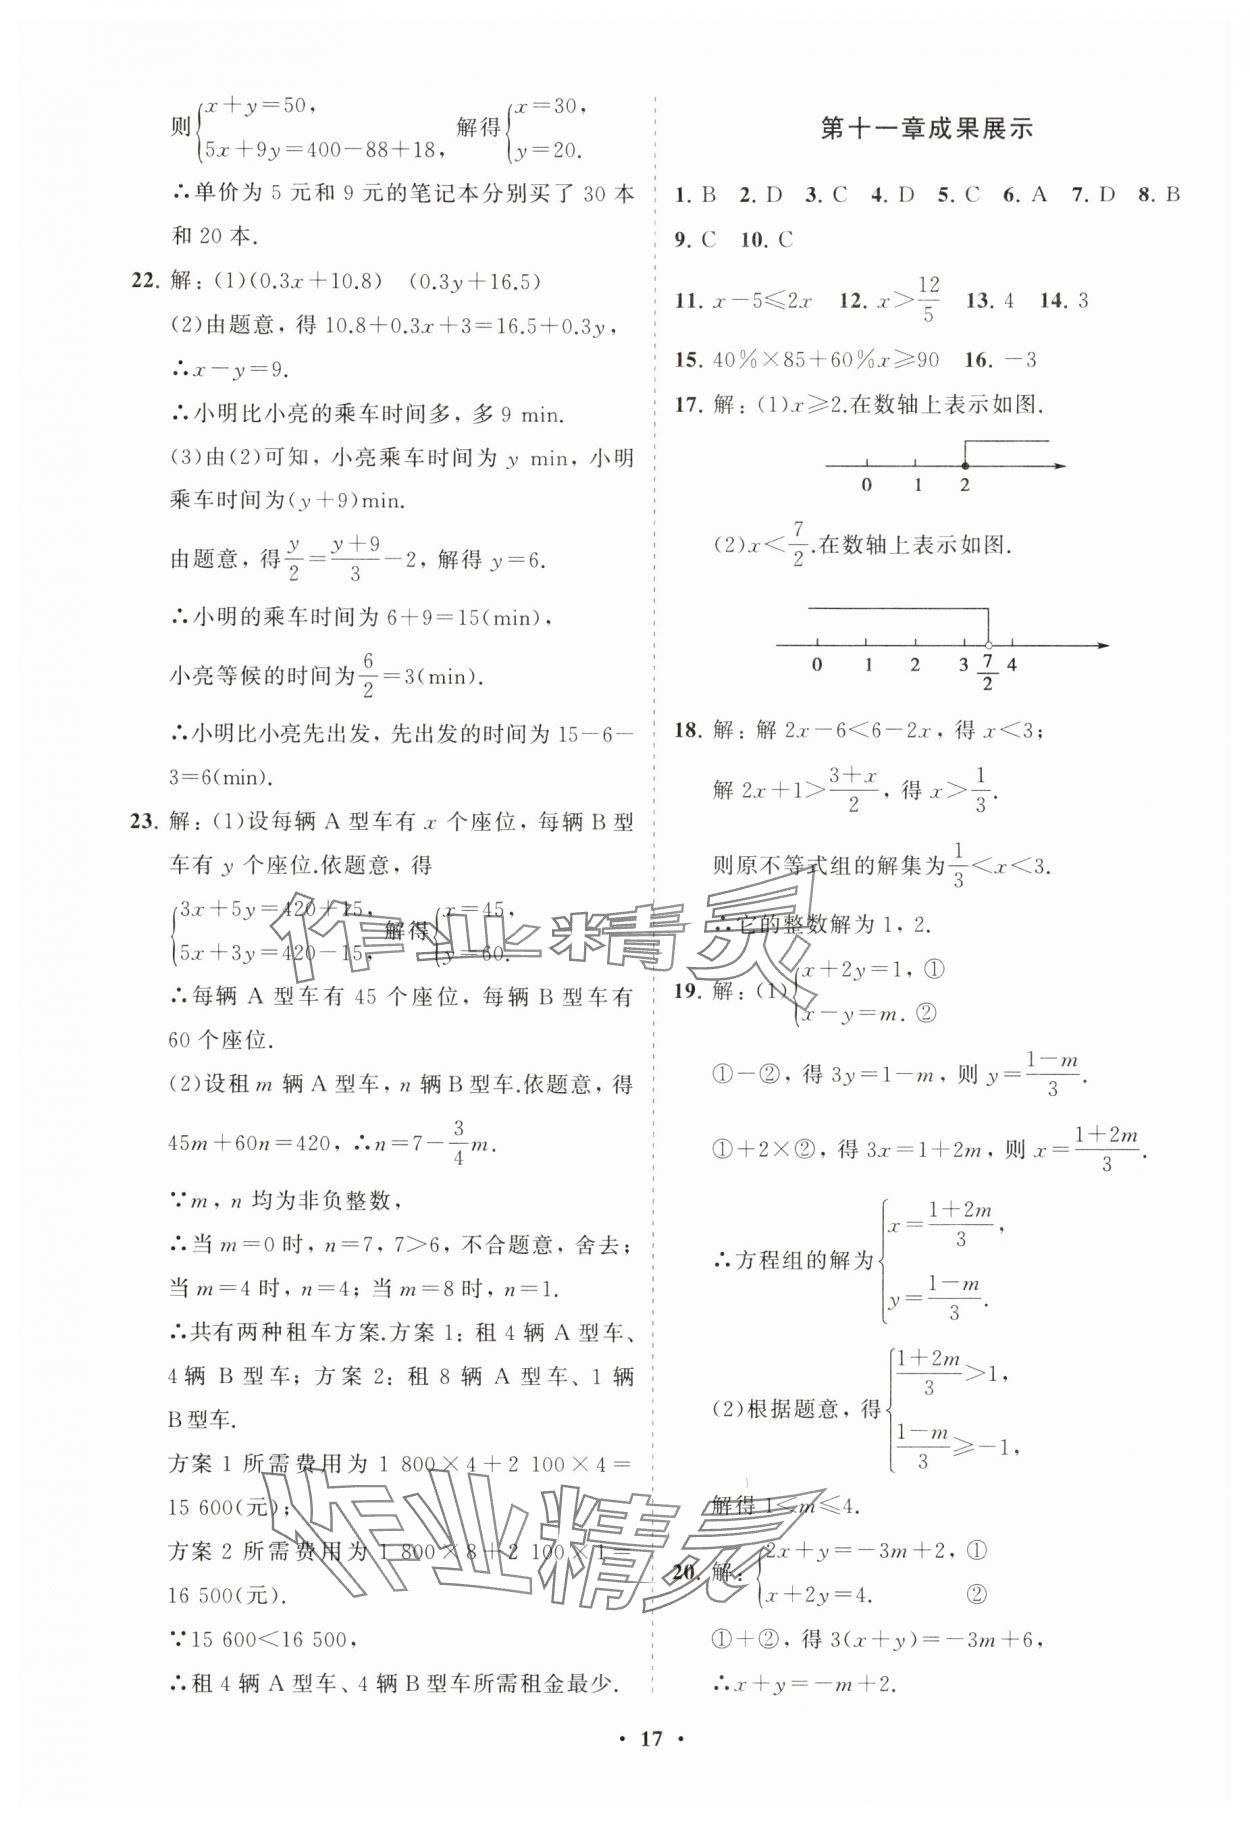 则{x+y=50, 5x+9y=400-88+18, 解得{x=30, y=20.
∴单价为 5 元和 9 元的笔记本分别买了 30 本
和 20 本.
22. 解：(1)(0.3x+10.8) (0.3y+16.5)
(2)由题意，得 10.8+0.3x+3=16.5+0.3y，
∴x-y=9.
∴小明比小亮的乘车时间多，多 9 min.
(3)由(2)可知，小亮乘车时间为 y min，小明
乘车时间为(y+9)min.
由题意，得y/2=(y+9)/3-2，解得 y=6.
∴小明的乘车时间为 6+9=15(min)，
小亮等候的时间为6/2=3(min).
∴小明比小亮先出发，先出发的时间为 15-6-
3=6(min).
23. 解：(1)设每辆 A 型车有 x 个座位，每辆 B 型
车有 y 个座位.依题意，得
{3x+5y=420+15, 5x+3y=420-15, 解得{x=45, y=60.
∴每辆 A 型车有 45 个座位，每辆 B 型车有
60 个座位.
(2)设租 m 辆 A 型车，n 辆 B 型车.依题意，得
45m+60n=420，∴n=7-3/4m.
∵m，n 均为非负整数，
∴当 m=0 时，n=7，7>6，不合题意，舍去；
当 m=4 时，n=4；当 m=8 时，n=1.
∴共有两种租车方案.方案 1：租 4 辆 A 型车、
4 辆 B 型车；方案 2：租 8 辆 A 型车、1 辆
B 型车.
方案 1 所需费用为 1 800×4+2 100×4=
15 600(元)；
方案 2 所需费用为 1 800×8+2 100×1=
16 500(元).
∵15 600<16 500，
∴租 4 辆 A 型车、4 辆 B 型车所需租金最少.
第十一章成果展示
1. B 2. D 3. C 4. D 5. C 6. A 7. D 8. B
9. C 10. C
11. x-5≤2x 12. x>12/5 13. 4 14. 3
15. 40%×85+60%x≥90 16. -3
17. 解：(1)x≥2.在数轴上表示如图.
0 1 2
(2)x<7/2.在数轴上表示如图.
0 1 2 3 7/2 4
18. 解：解 2x-6<6-2x，得 x<3；
解 2x+1>(3+x)/2，得 x>1/3.
则原不等式组的解集为1/3<x<3.
∴它的整数解为 1，2.
19. 解：(1){x+2y=1, ① x-y=m. ②
①-②，得 3y=1-m，则 y=(1-m)/3.
①+2×②，得 3x=1+2m，则 x=(1+2m)/3.
∴方程组的解为{x=(1+2m)/3, y=(1-m)/3.
(2)根据题意，得{(1+2m)/3>1, (1-m)/3≥-1,
解得 1<m≤4.
20. 解：{2x+y=-3m+2, ① x+2y=4. ②
①+②，得 3(x+y)=-3m+6，
∴x+y=-m+2.
• 17 •
作业精灵
作业精灵